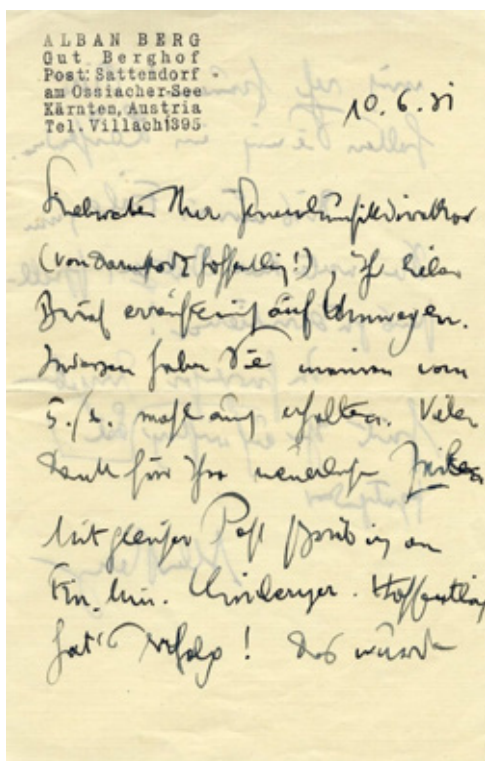 ALBAN BERG
Gut Berghof
Post: Sattendorf
am Ossiacher-See
Kärnten, Austria
Tel. Villach1395
10.6.31
Herr Generalmusikdirektor
(von Darmstadt hoffentlich!), Ihr lieber
Brief erreichte mich auf Umwegen.
Indessen haben Sie meinen vom
5./6. wohl auch erhalten. Vielen
Dank für Ihre neuerlichen Zeilen
Mit gleicher Post schreib ich an
Fin. Min. Hoffentlich
hat's Erfolg! Das würde